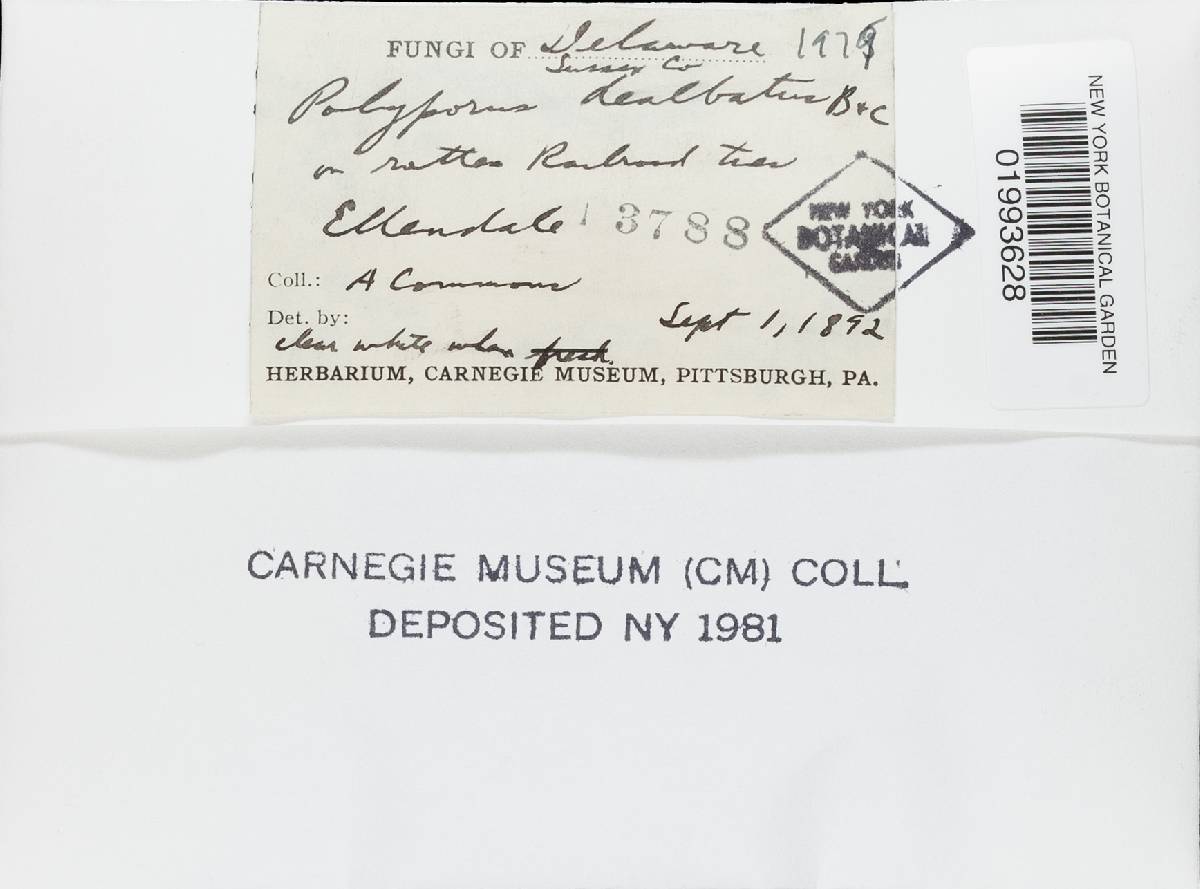 FUNGI OF Delaware
Sussex Co
Polyporus dealbatus B&C
on rotten Railroad ties
Ellendale 3788
NEW YORK
BOTANICAL
GARDEN
Coll.: A Commons
Det. by: Sept 1, 1892
clear white when fresh.
HERBARIUM, CARNEGIE MUSEUM, PITTSBURGH, PA.
NEW YORK BOTANICAL GARDEN
01993628
CARNEGIE MUSEUM (CM) COLL.
DEPOSITED NY 1981